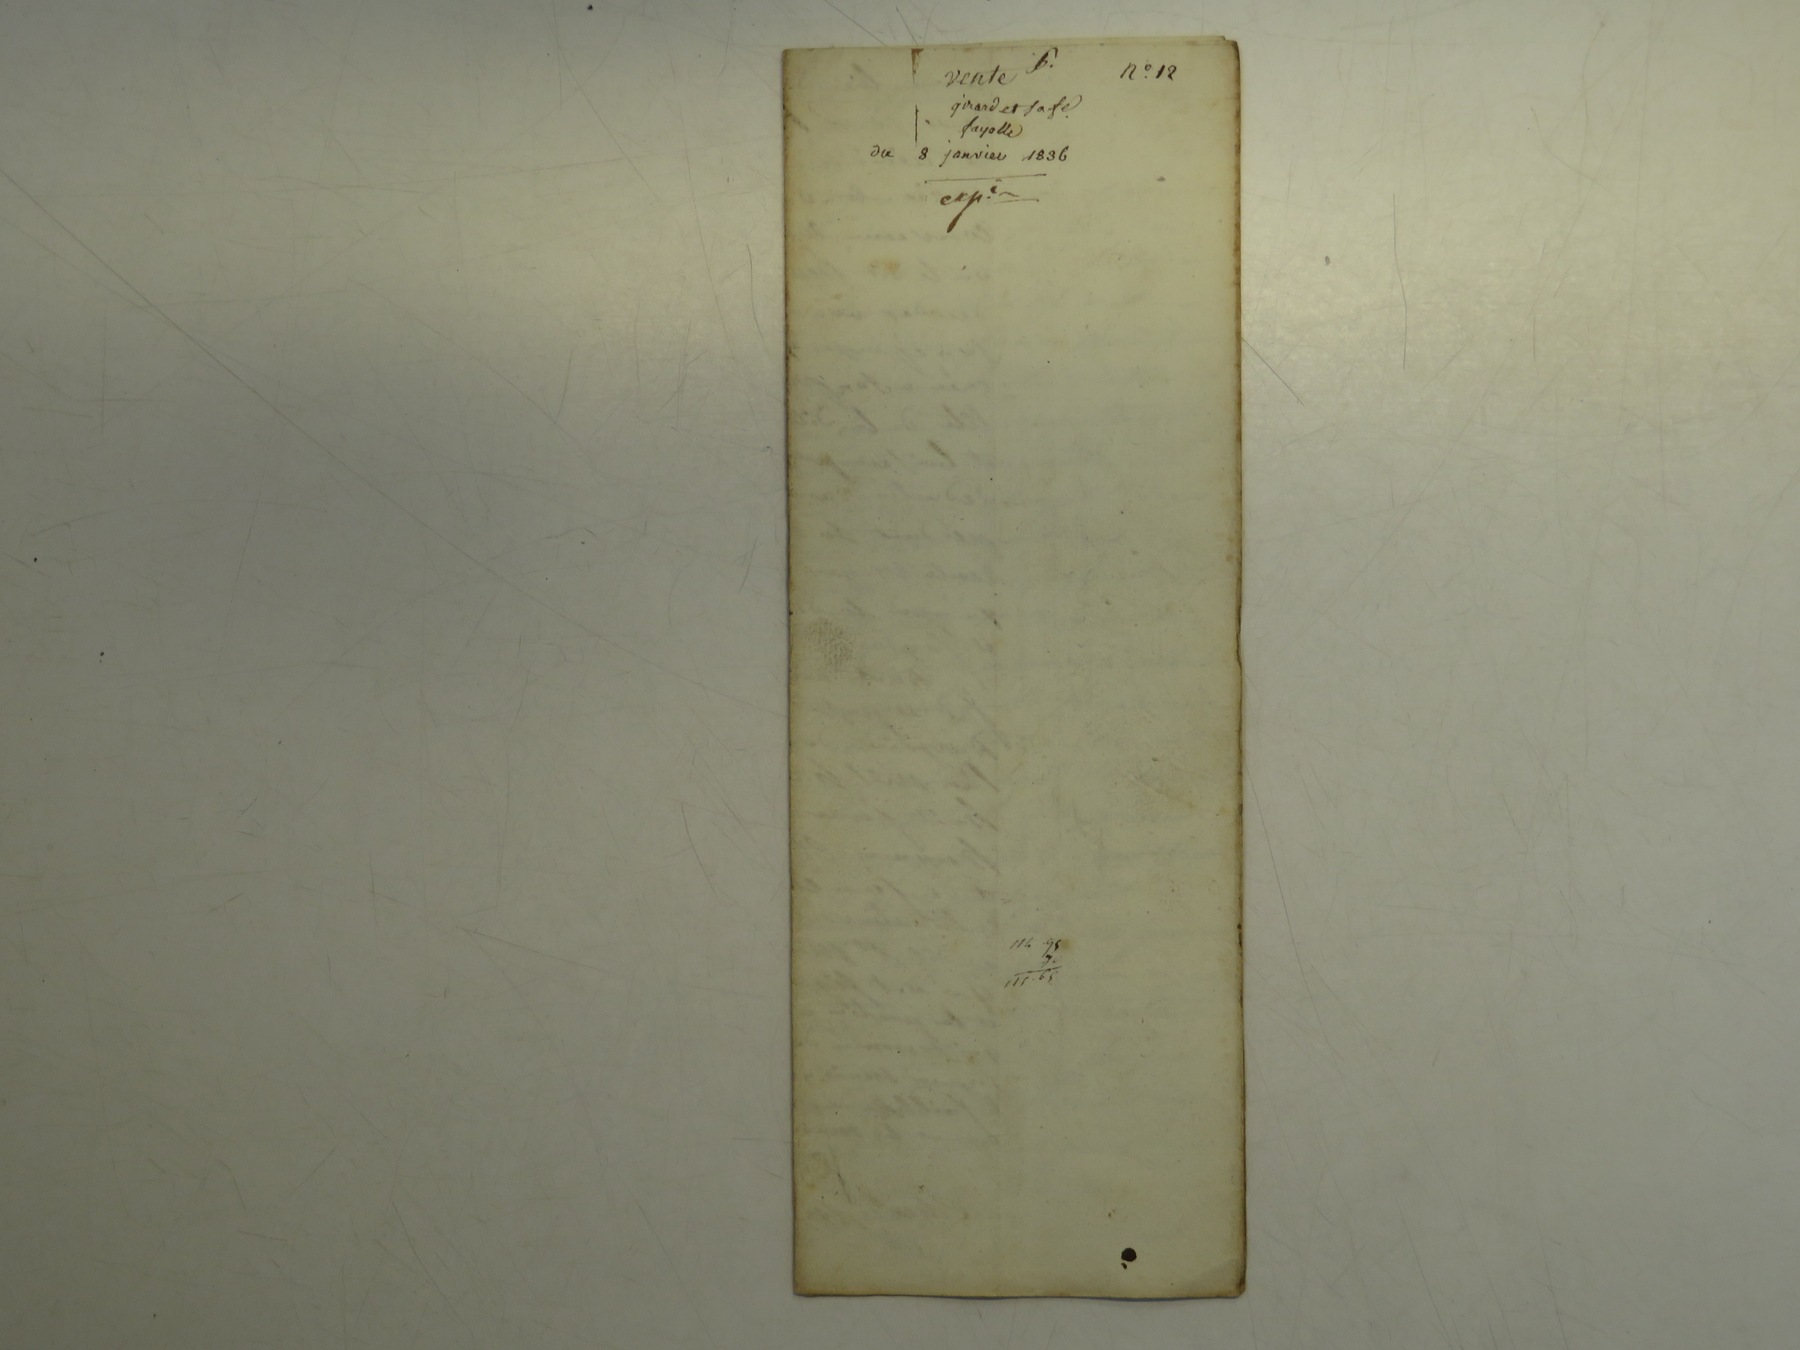 vente p. N.º 12
girard et sa fe.
fayolle
du 8 janvier 1836
exp.e
114 95
7.
65